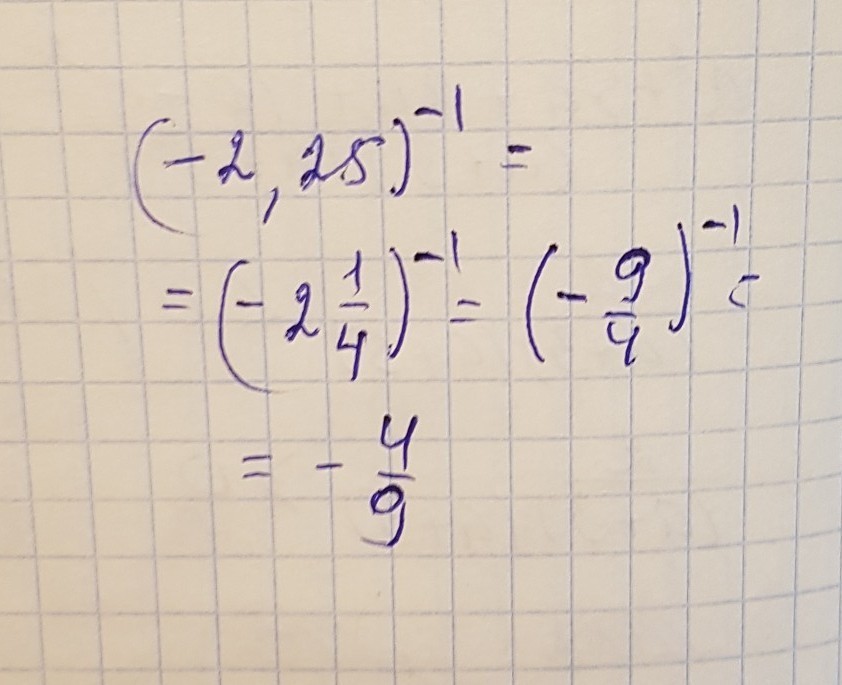 (-2,25)⁻¹ =
= (-2 1/4)⁻¹ = (- 9/4)⁻¹ =
= - 4/9